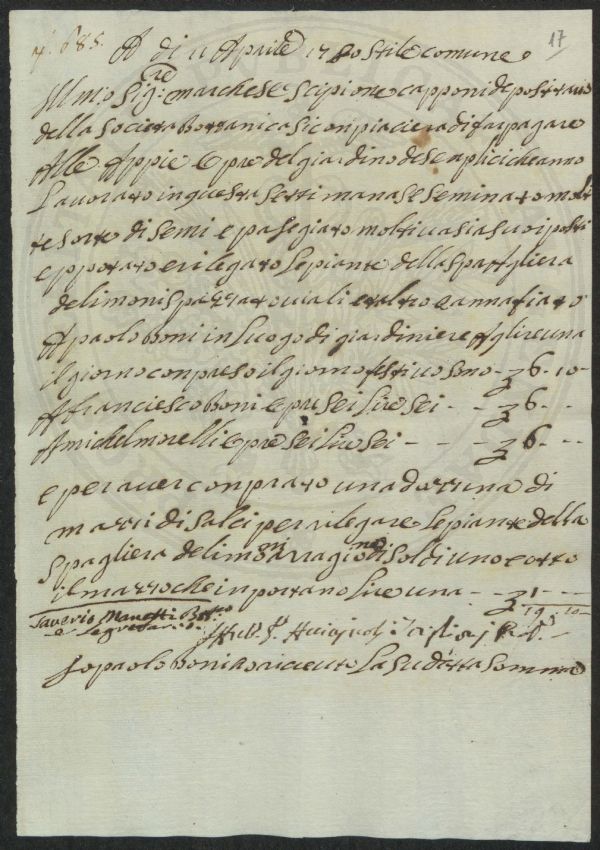 N. 685. 17
A di 11 Aprile 1780 stile comune
Ill mo Sig:re marchese Scipione capponi depositario
della Societa Bottanica si conpiacera di far pagare
Alle Appie e pre del giardino de senplici che anno
Lavorato in questa Settimana e Seminato molte
te sorte di Semi e pasegiato molti uasi a suoi posti
e potato e rilegato le piante della Spagliera
de limoni spazzato uiali e altro e annafiato
A paolo Boni in Luogo di giardiniere A lire una
il giorno conpreso il giorno festiuo sono - 6 - 10 -
A franciesco Boni e pre Sei Lire Sei - - - 6 - -
A michel morelli e pre Sei Lire Sei - - - - 6 - -
e per auer conprato una dozzina di
mazzi di Salci per rilegare le piante della
Spagliera de limoni a ragione di Soldi uno e otto
il mazzo che inportano Lire una - - 1 - -
19 . 10 -
Saverio Manetti Bott.co
e Segretario.
Io paolo boni ho riceuto La Sudetta Somma